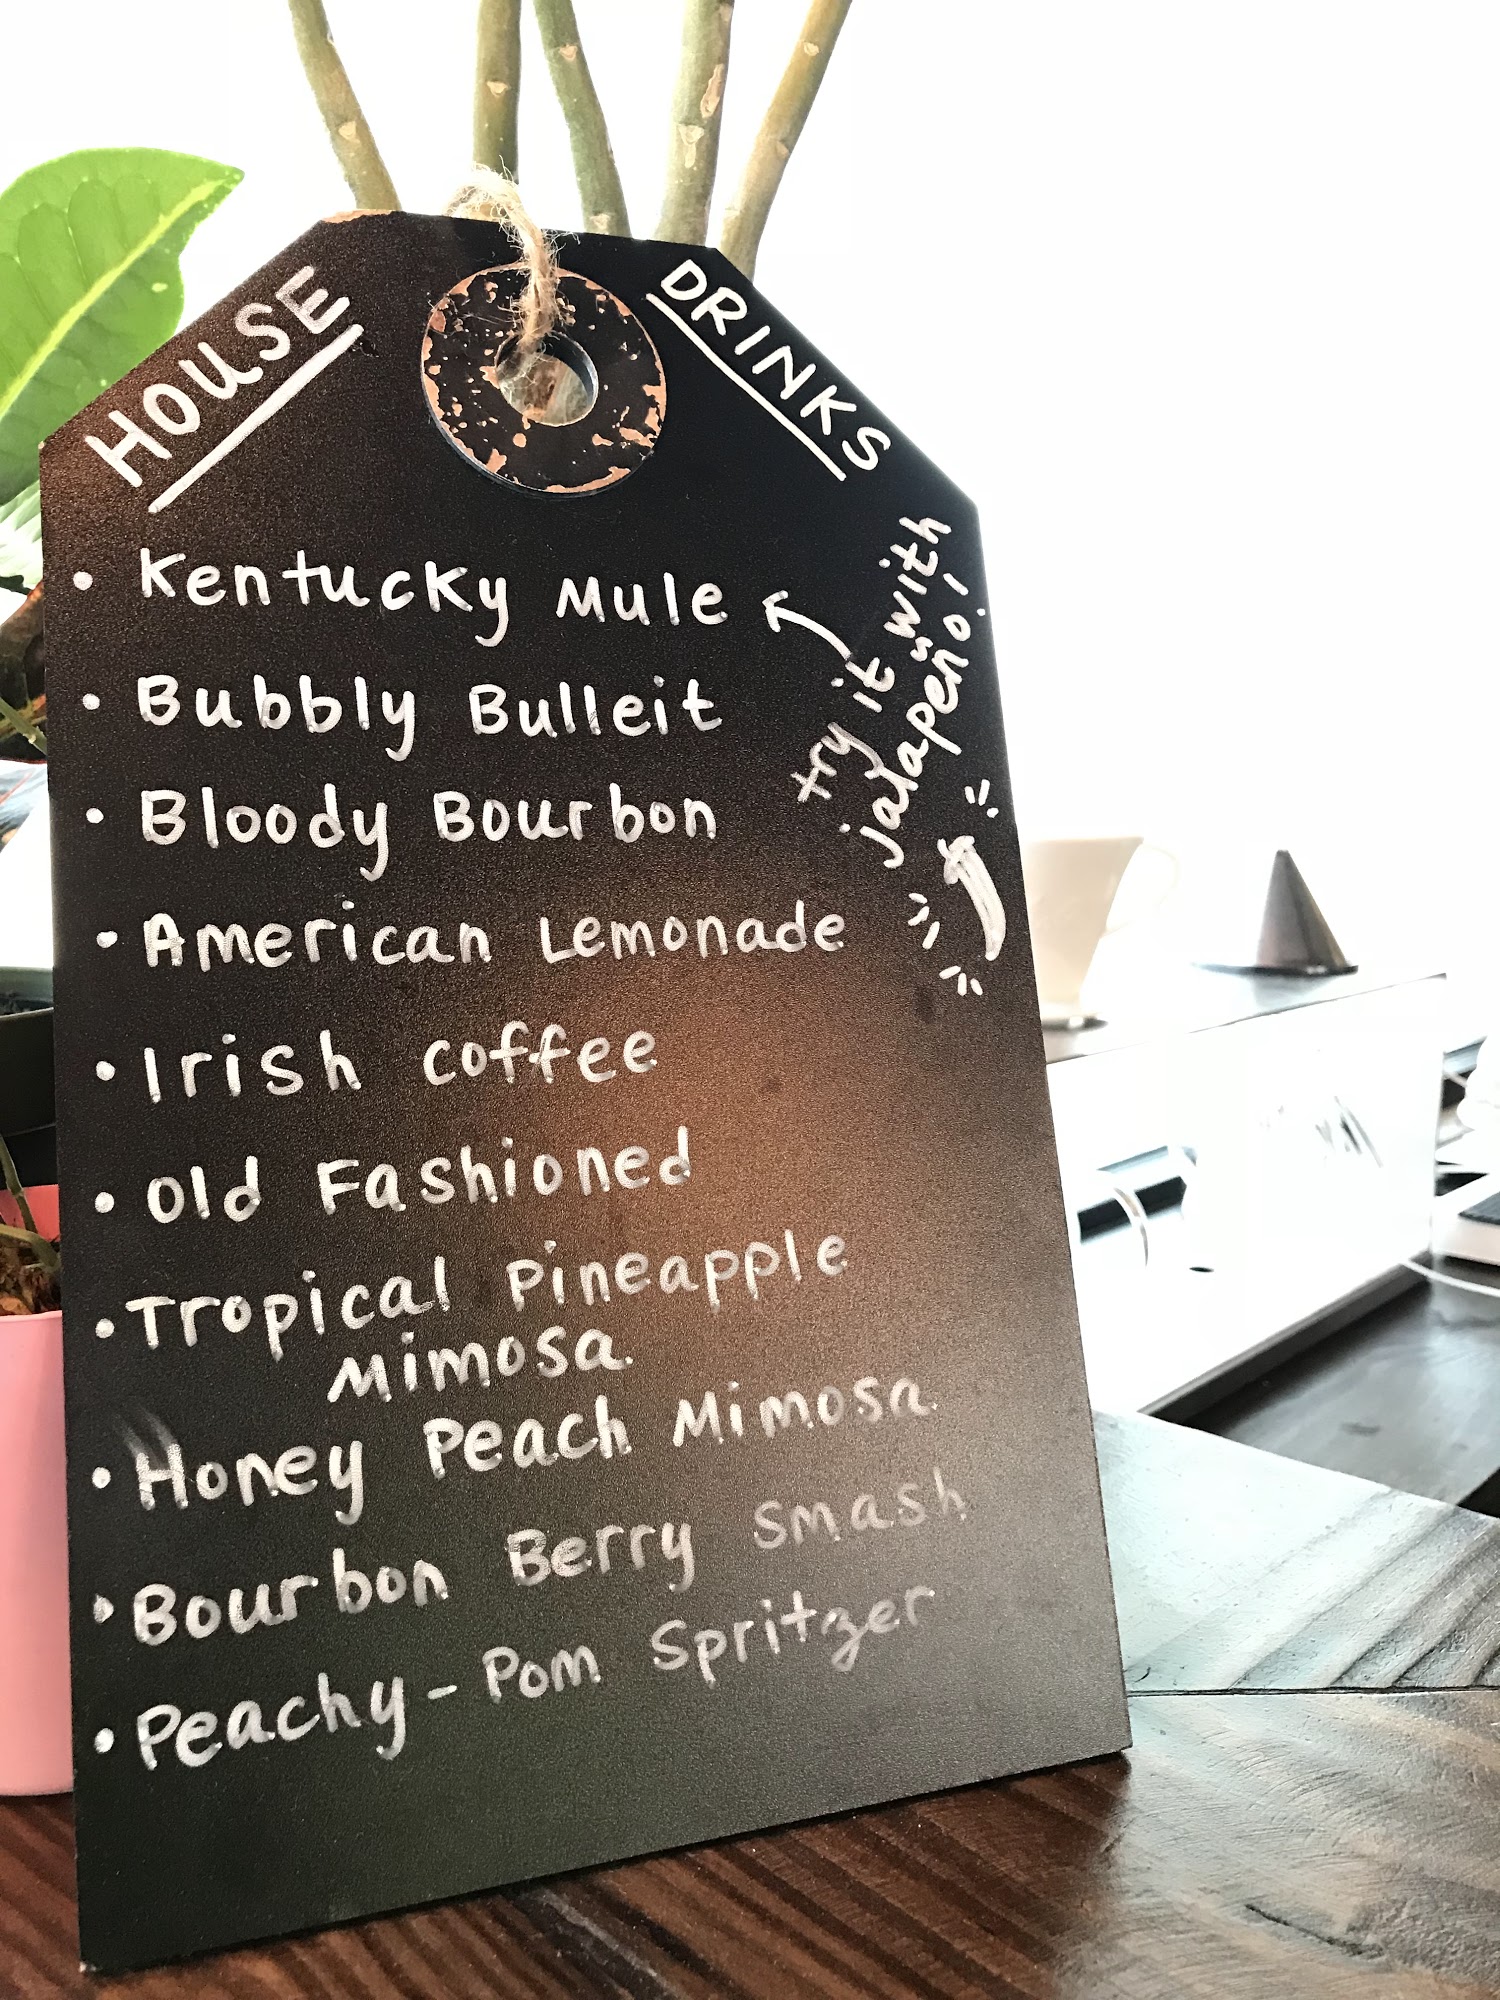 HOUSE
DRINKS
• Kentucky Mule
try it with
jalapeño!
• Bubbly Bulleit
• Bloody Bourbon
• American Lemonade
• Irish coffee
• Old Fashioned
• Tropical Pineapple
Mimosa
• Honey Peach Mimosa
• Bourbon Berry Smash
• Peachy-Pom Spritzer